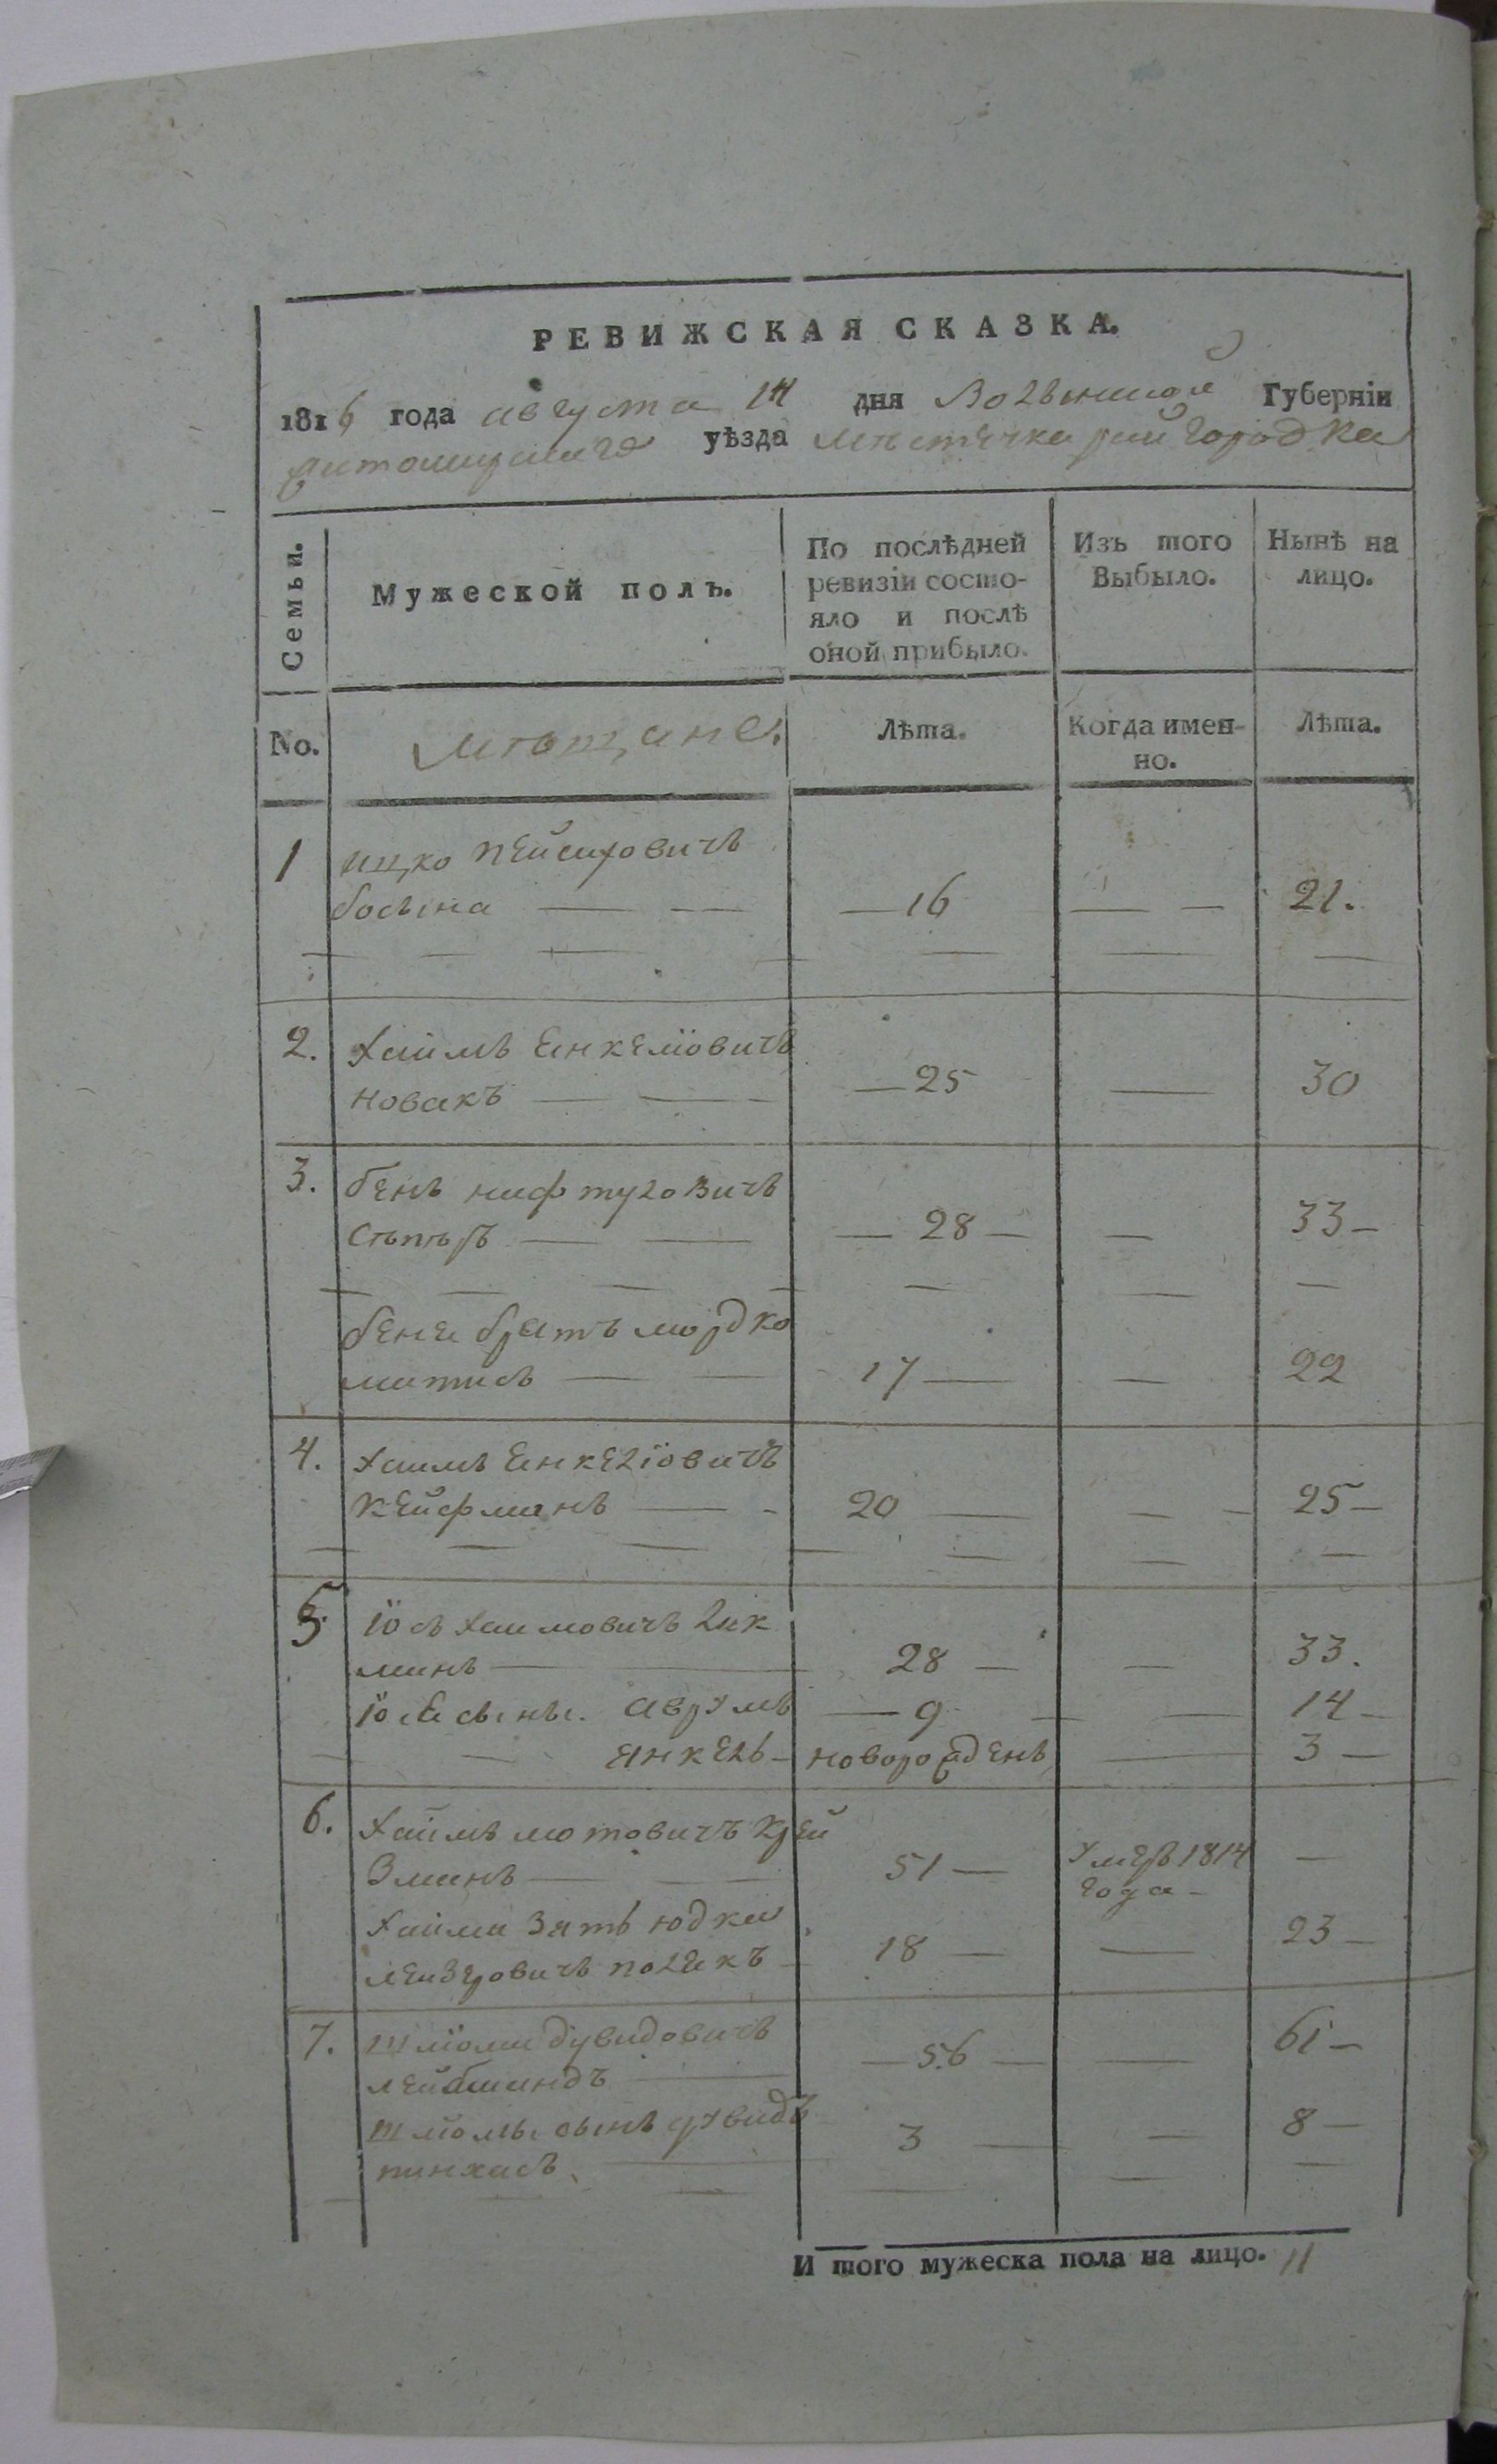 РЕВИЖСКАЯ СКАЗКА.
1816 года августа 14 дня Волынской Губернiи
житомирскаго уѣзда мѣстечка райгородка
Семьи. Мужеской полъ. По послѣдней ревизiи состояло и послѣ оной прибыло. Изъ того Выбыло. Нынѣ на лицо.
No. мѣщане. Лѣта. Когда именно. Лѣта.
1 ицко пейсиховичъ
— 16 — — 21.
2. хаимъ енкелiовичъ
новакъ — — — 25 — 30
3. бенъ нифтуловичъ
— 28 — — 33 —
бени братъ мордко
матисъ — — 17 — — 22
4. хаимъ енкелiовичъ
кейфманъ — — 20 — — 25 —
5. iосъ хаимовичъ лих
манъ — 28 — — 33.
iося сыны. аврумъ — 9 — — 14 —
янкель — новорожденъ — 3 —
6. хаймъ мотовичъ крей
зманъ — 51 — умеръ 1814 года — —
хайма зять юдка
лейзеровичъ полякъ — 18 — — 23 —
7. шлiома дувидовичъ
— 56 — — 61 —
шлiомы сынъ дувидъ
пинхасъ — 3 — — 8 —
И того мужеска пола на лицо. 11